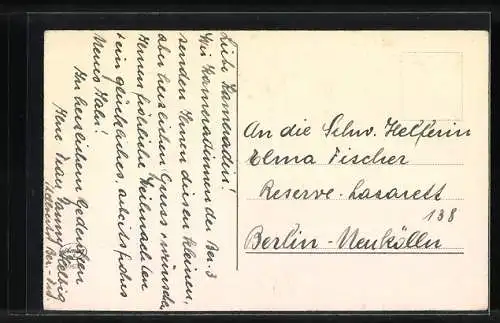 Liebe Kameradin!
Wir Kameradinnen der Ber. 3
senden Ihnen diesen kleinen,
aber herzlichen Gruss u. wünschen
Ihnen fröhliche Weihnachten
u. ein glückliches, arbeitsfrohes
Neues Jahr!
In herzlichem Gedenken
Ihre Frau Helbig
An die Schw. Helferin
Elma Fischer
Reserve-Lazarett
138
Berlin-Neukölln